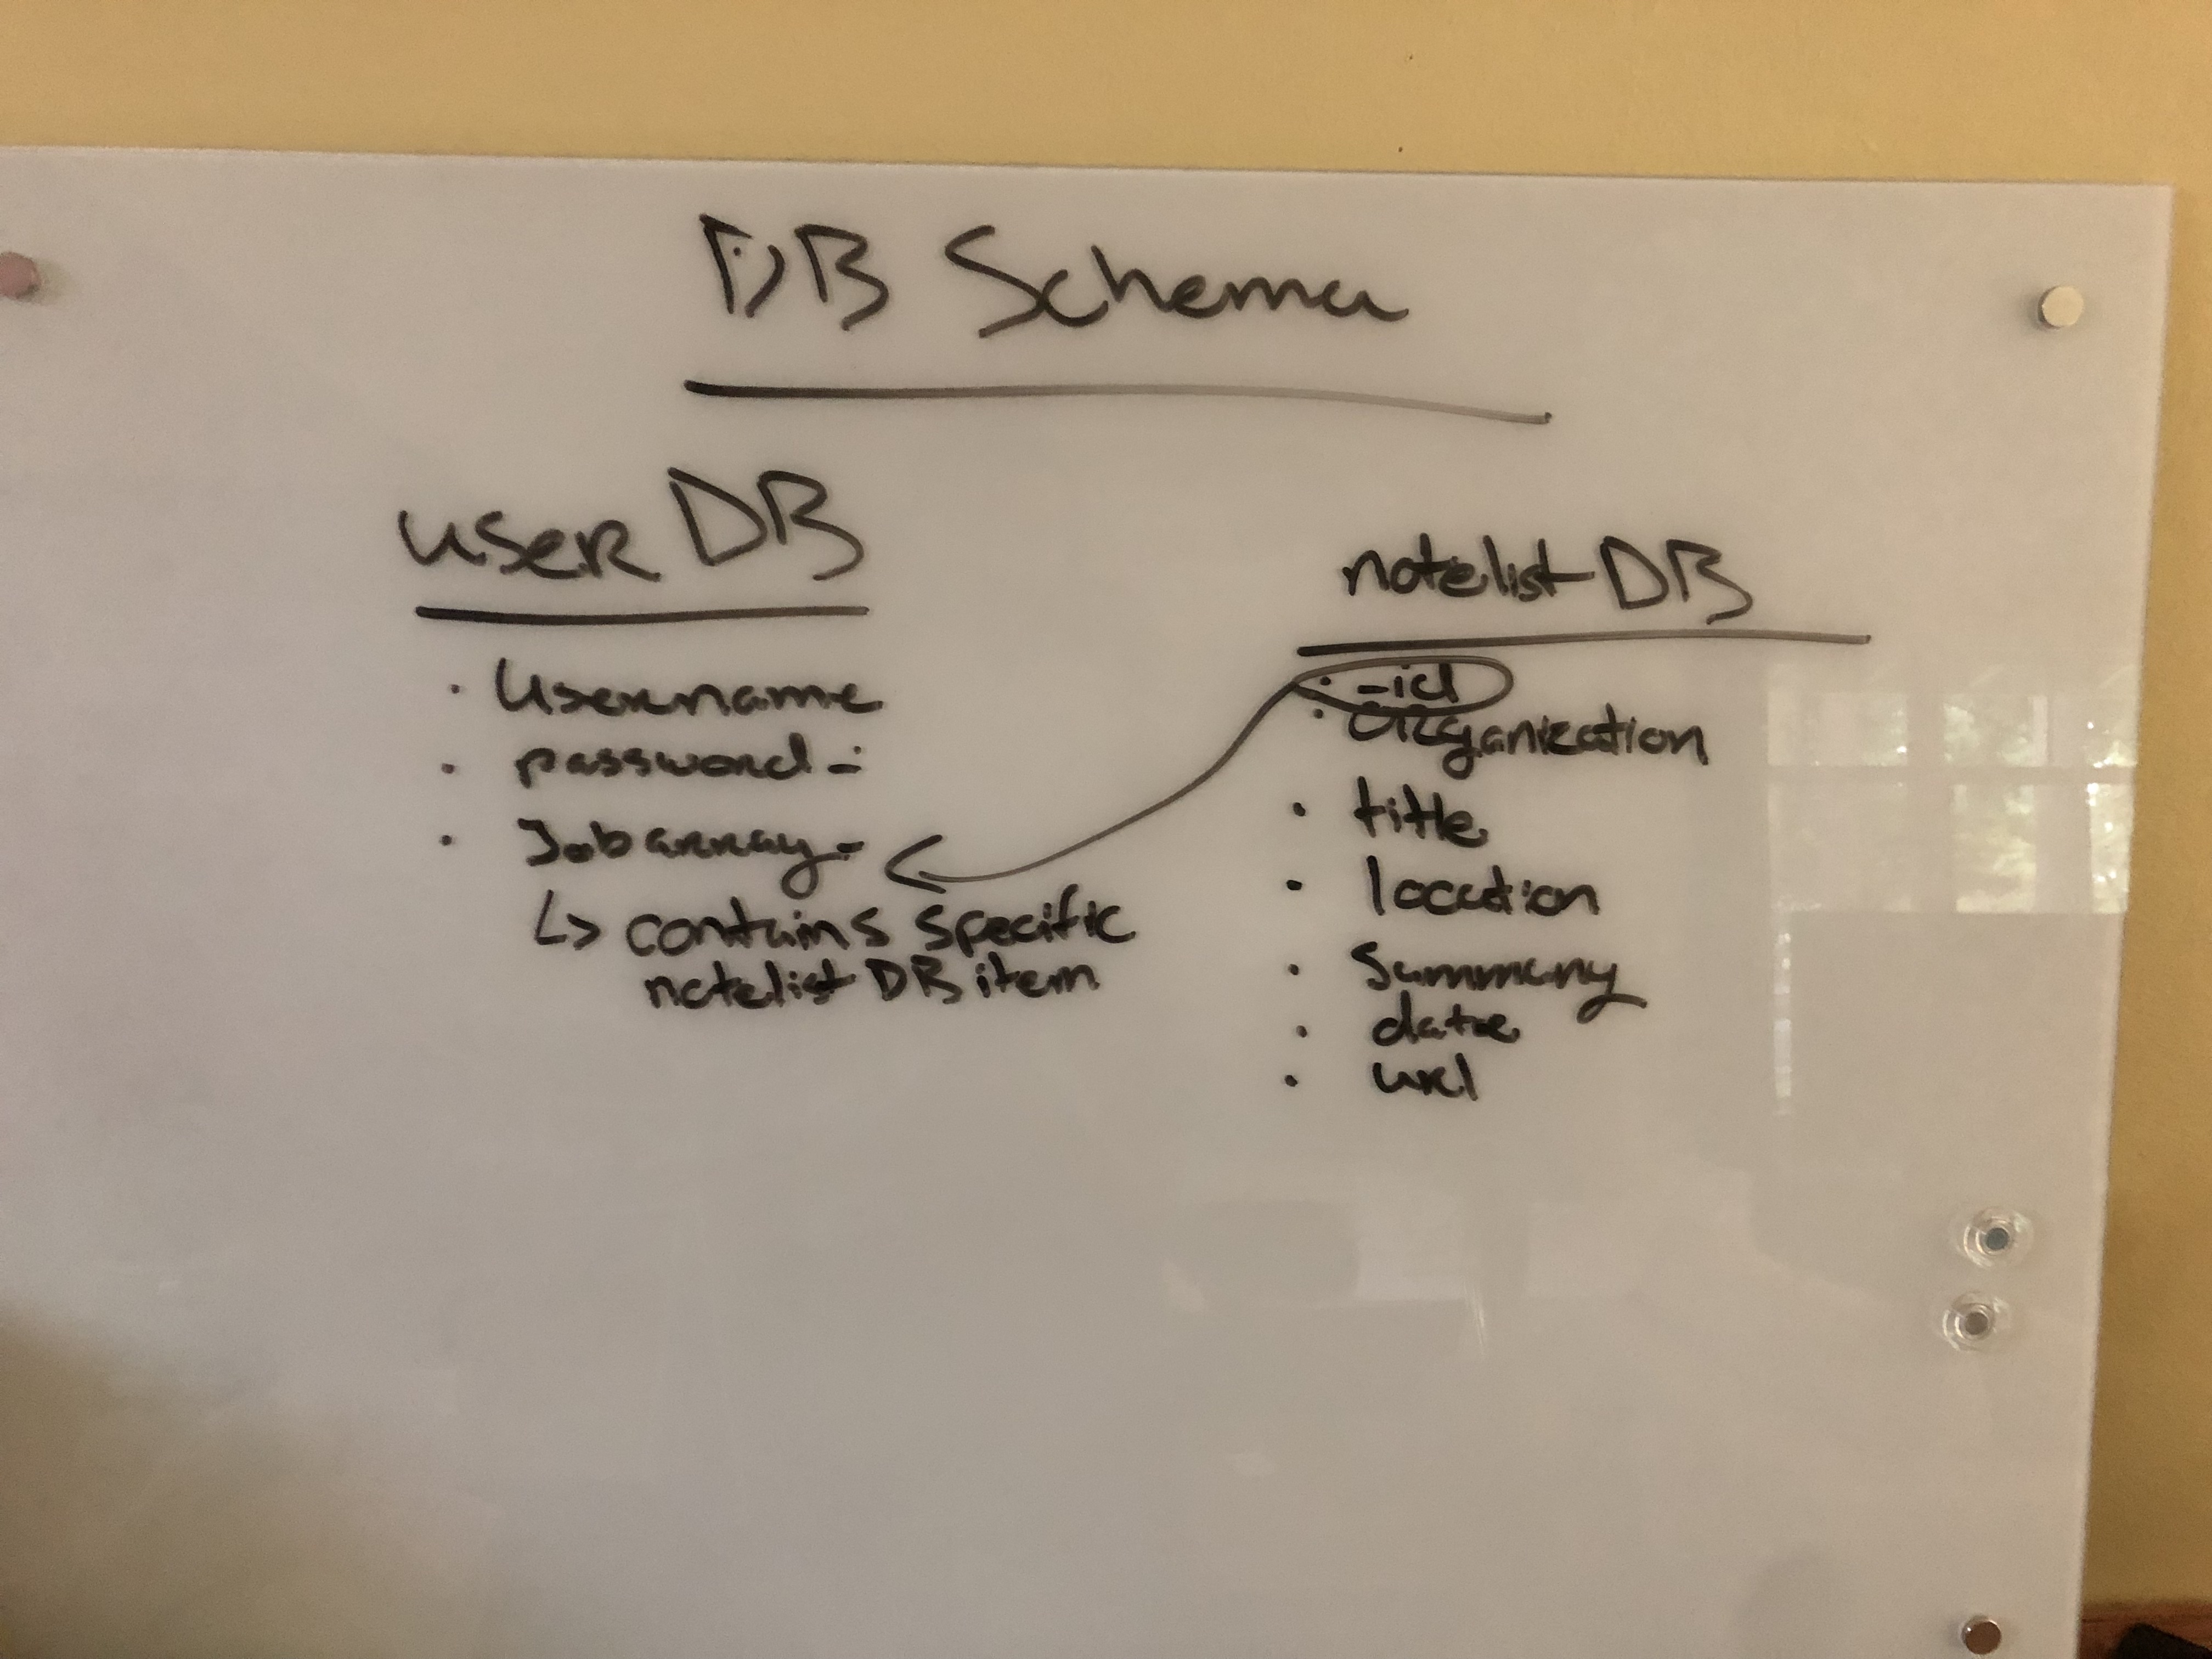 DB Schema
user DB
· Username
· password -
· Job array -
↳ contains specific
notelist DB item
notelist DB
· _id
· organization
· title
· location
· Summary
· date
· url